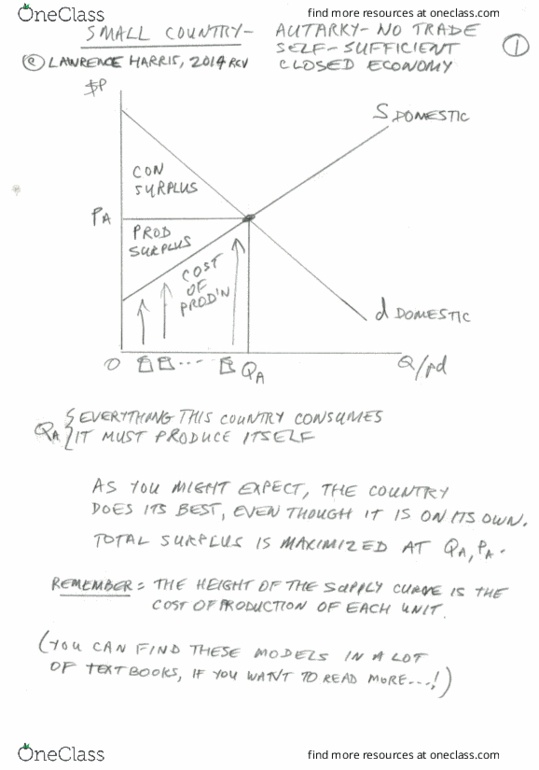 find more resources at oneclass.com
OneClass
SMALL COUNTRY- AUTARKY- NO TRADE
SELF-SUFFICIENT
CLOSED ECONOMY
1
© LAWRENCE HARRIS, 2014 REV
$P
S DOMESTIC
CON
SURPLUS
PA
PROD
SURPLUS
COST
OF
PROD'N
d DOMESTIC
O
...
QA
Q/pd
QA { EVERYTHING THIS COUNTRY CONSUMES
IT MUST PRODUCE ITSELF
AS YOU MIGHT EXPECT, THE COUNTRY
DOES ITS BEST, EVEN THOUGH IT IS ON ITS OWN.
TOTAL SURPLUS IS MAXIMIZED AT QA, PA.
REMEMBER: THE HEIGHT OF THE SUPPLY CURVE IS THE
COST OF PRODUCTION OF EACH UNIT.
(YOU CAN FIND THESE MODELS IN A LOT
OF TEXTBOOKS, IF YOU WANT TO READ MORE...!)
OneClass
find more resources at oneclass.com